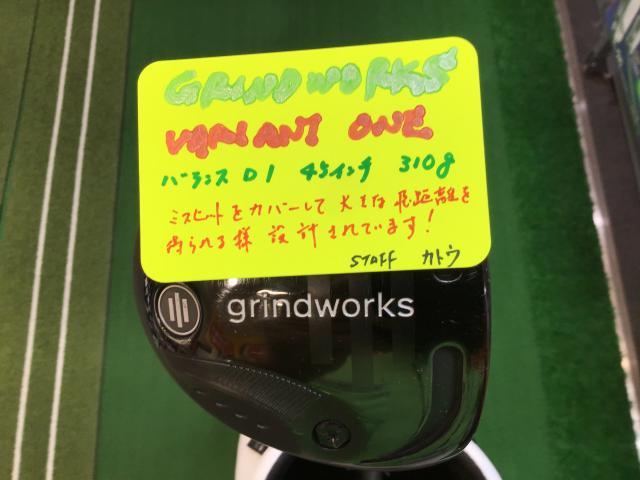 GRINDWORKS
VARIANT ONE
バランス D1 45インチ 310g
ミスヒットをカバーして 大きな飛距離を
得られる様 設計されています!
STAFF カトウ
grindworks